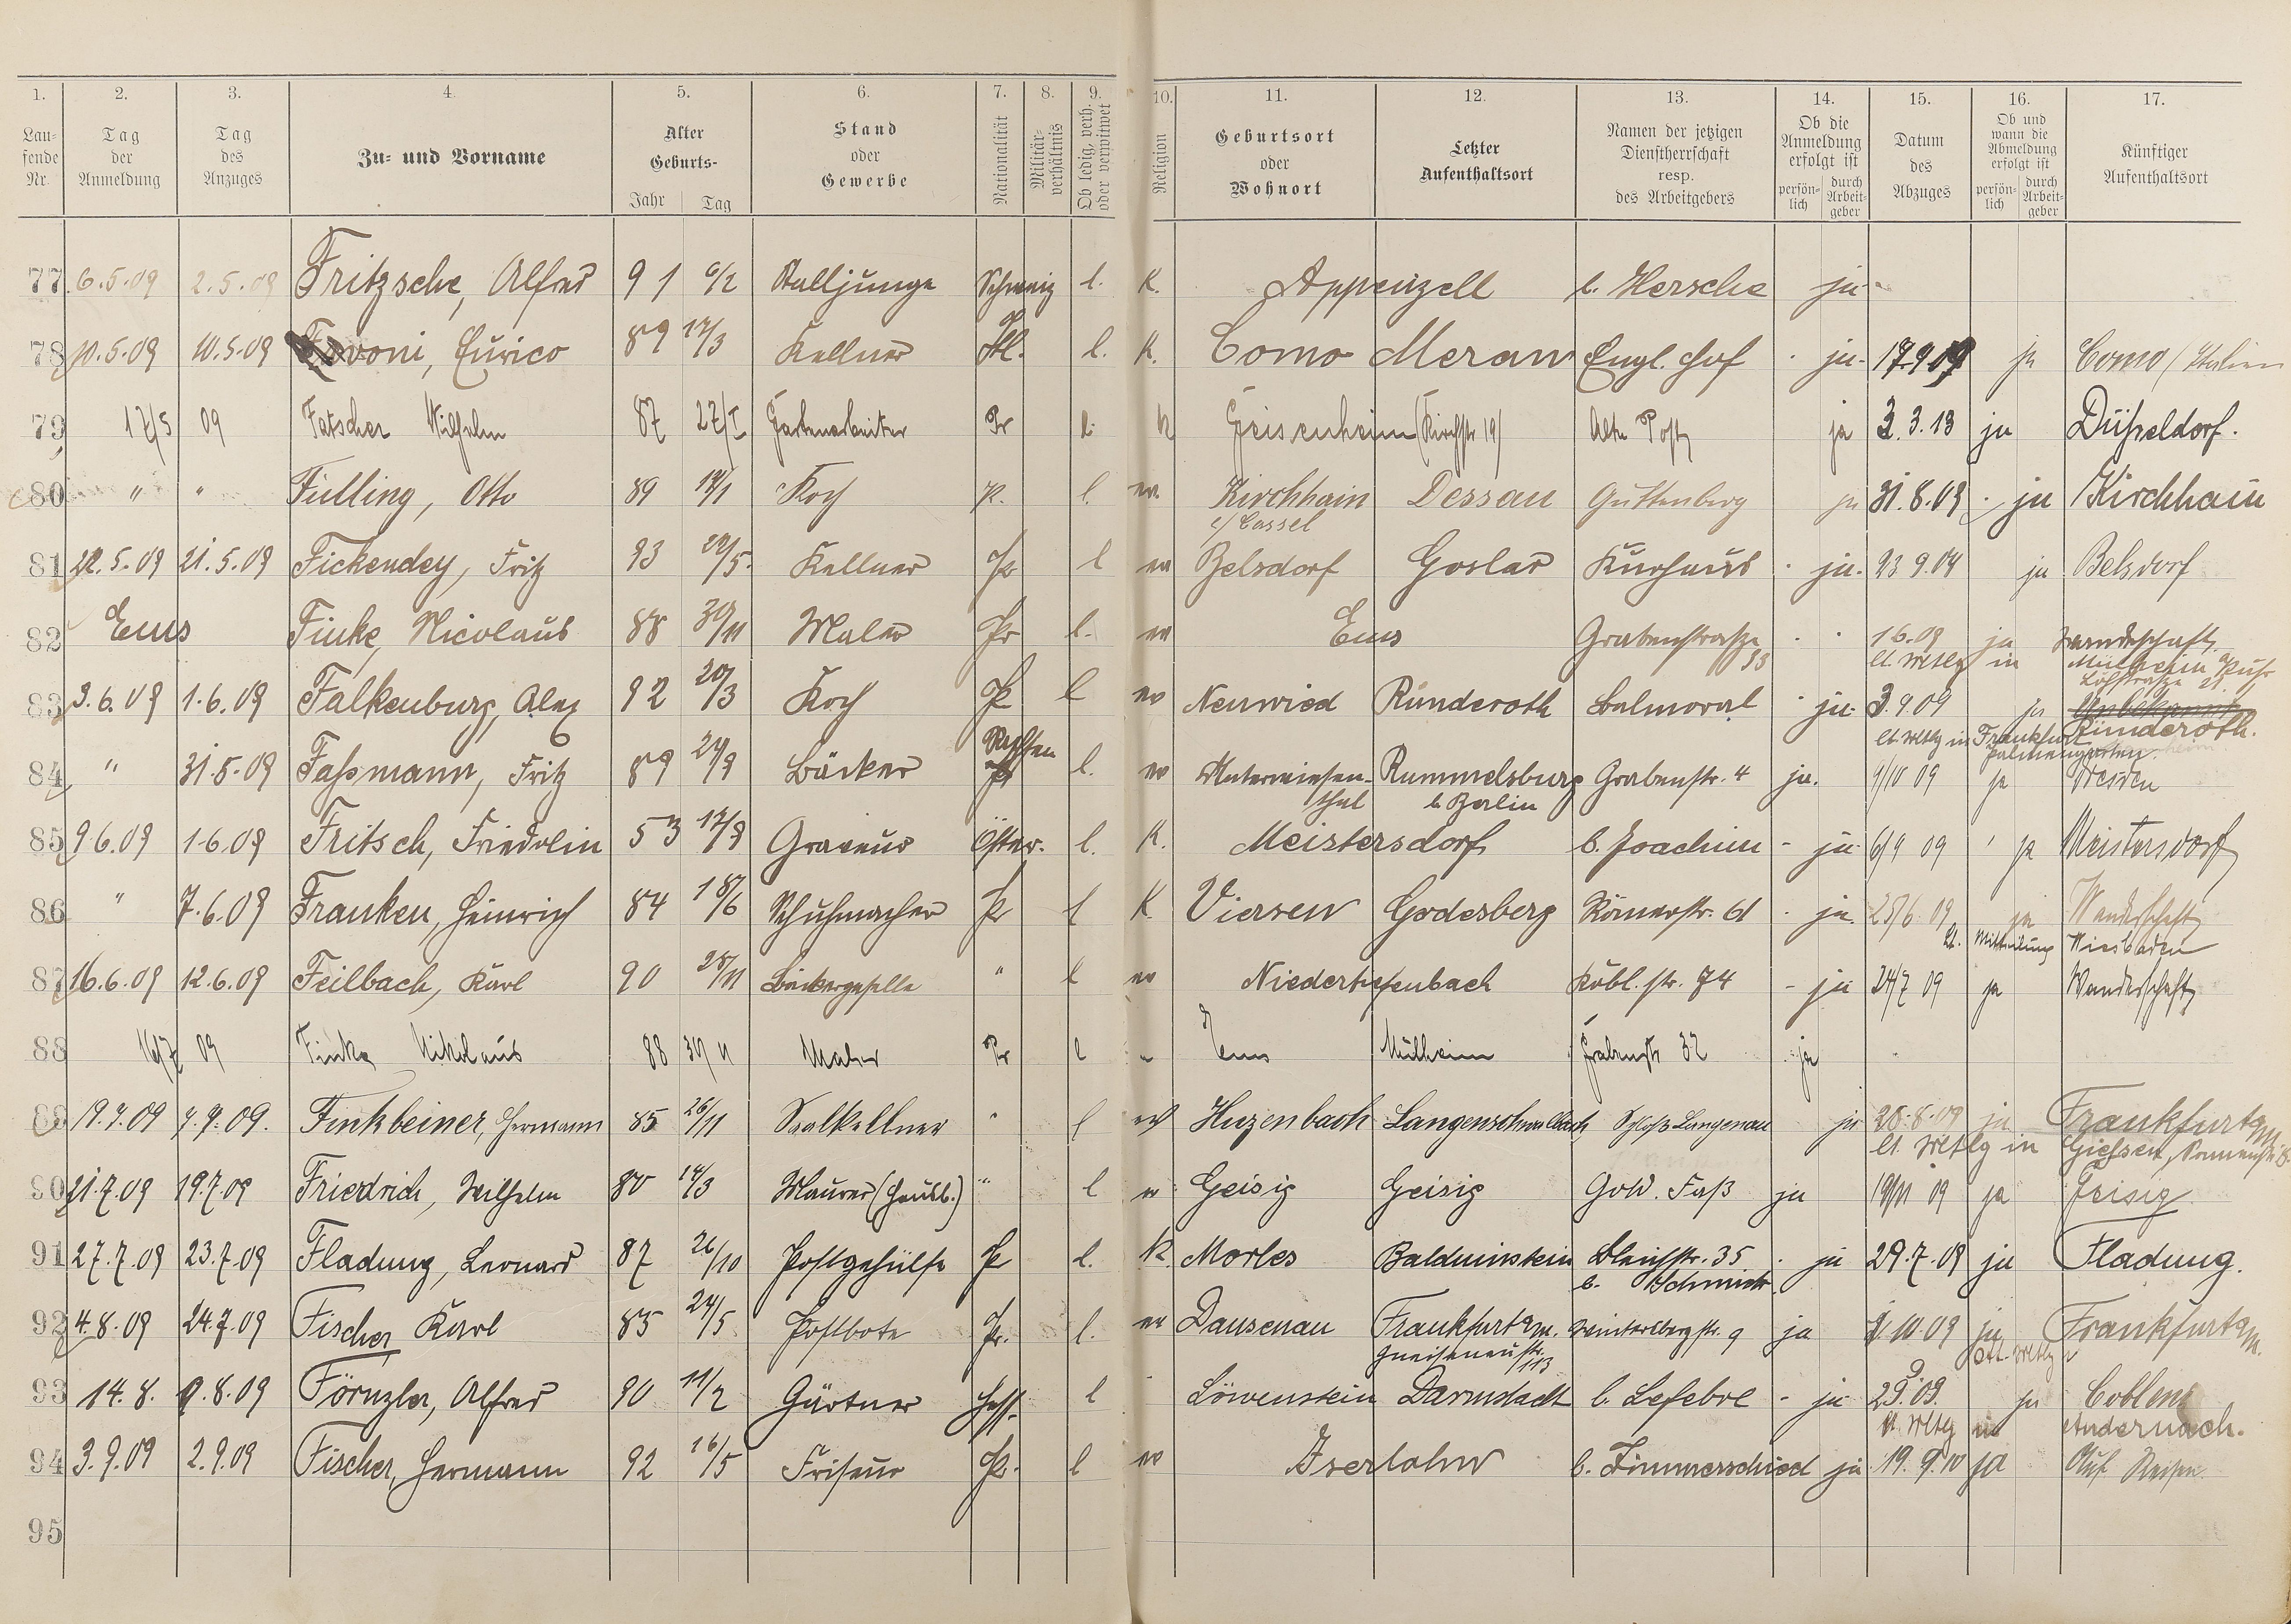 1. 2. 3. 4. 5. 6. 7. 8. 9. 10. 11. 12. 13. 14. 15. 16. 17.
Lau-fende Nr. Tag der Anmeldung Tag des Anzuges Zu- und Vorname Alter Geburts- Jahr Tag Stand oder Gewerbe Nationalität Militär-verhältnis Ob ledig, verh. oder verwitwet Religion Geburtsort oder Wohnort Letzter Aufenthaltsort Namen der jetzigen Dienstherrschaft resp. des Arbeitgebers Ob die Anmeldung erfolgt ist persön-lich durch Arbeit-geber Datum des Abzuges Ob und wann die Abmeldung erfolgt ist persön-lich durch Arbeit-geber Künftiger Aufenthaltsort
77 6.5.09 2.5.09 Fritzsche, Alfred 91 6/2 Stalljunge Schweiz l. K. Appenzell b. Hersche ja
78 10.5.09 10.5.09 Enrico 89 17/3 Kellner Itl. l. K. Como Meran Engl. Hof ja 17.9.09 ja Como (Italien
79 17/5 09 Fatscher Wilhelm 87 27/I Gartenarbeiter Pr l. K Geisenheim (Kirchstr 19) Alte Post ja 3.3.13 ja Düsseldorf.
80 " " Fülling, Otto 89 19/1 Koch Pr. l. ev. Kirchhain Dessau Guttenberg ja 31.8.09 ja Kirchhain
b/ Cassel
81 22.5.09 21.5.09 Fickendey, Fritz 93 29/5. Kellner Pr l ev Belsdorf Goslar Kurhaus ja. 23 9.09 ja Belsdorf
82 Ems Finke, Nicolaus 88 30/11 Maler Pr l. ev Ems Grabenstrasze 33 1 6.09 ja Wanderschaft.
lt. Mttlg in Mülheim a/Ruhr
83 3.6.09 1.6.09 Falkenburg, Alex 92 20/3 Koch Pr l ev Neuwied Ründeroth Balmoral ja 3.9.09 ja Unbekannt Ründeroth.
lt. Mttlg in Frankfurt Palmengarten
84 " 31.5.09 Faßmann, Fritz 89 24/9 Bäcker Sachsen Pr l. ev Unterwiesen-thal Rummelsburg b. Berlin Grabenstr. 4 ja. 9/10 09 ja Dresden
85 9 6.09 1.6.09 Fritsch, Friedolin 53 17/9 Graveur Öster. l. K. Meistersdorf b. Joachim - ja 6/9 09 ja Meistersdorf
86 " 7.6.09 Franken, Heinrich 84 18/6 Schuhmacher Pr l K Viersen Godesberg Römerstr. 61 ja. 25/6 09 ja Wanderschaft
lt. Mitteilung Wiesbaden
87 16.6.09 12.6.09 Feilbach, Karl 90 28/11 Bäckergeselle " l ev Niedertiefenbach Kobl. str. 74 - ja 24/7 09 ja Wanderschaft
88 16/7 09 Finke Nikolaus 88 30/11 Maler Pr l " Ems Mülheim Grabenstr 32 ja
89 19.7.09 7.7.09. Finkbeiner, Hermann 85 26/11 Saalkellner " l ev Huzenbach Langenschwalbach Schloß Langenau ja 28.8.09 ja Frankfurt a/M.
lt. Mttlg in Giessen,
90 21.7.09 19.7.09 Friedrich, Wilhelm 80 14/3 Maurer (Hausb.) " l ev Geisig Geisig Gold. Faß ja 19/11 09 ja Geisig
91 27.7.09 23.7.09 Fladung, Leonard 87 26/10 Postgehülfe Pr l. K. Morles Balduinstein Bleichstr. 35. b. Schmidt ja 29.7.09 ja Fladung.
92 4.8.09 24.7.09 Fischer Karl 85 24/5 Postbote Pr. l. ev Dausenau Frankfurt a/M. Gneisenaustr. 113 Wintersbergstr. 9 ja 1.10.09 ja Frankfurt a/M.
93 14.8. 9.8.09 Förnzler, Alfred 90 11/2 Gärtner Hess. l Löwenstein Darmstadt b. Lefebre - ja 29.09. ja Coblenz
lt. Mttlg in Andernach.
94 3.9.09 2.9.09 Fischer, Hermann 92 16/5 Friseur Pr. l ev Iserlohn b. Zimmerschied ja 19.9.10 ja Auf Reisen
95